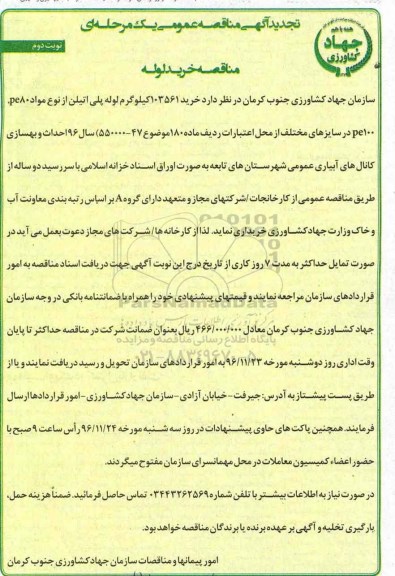 تجدید آگهی مناقصه عمومی یک مرحله‌ای
نوبت دوم
همه با هم
جهاد
کشاورزی
مناقصه خرید لوله
سازمان جهاد کشاورزی جنوب کرمان در نظر دارد خرید ۱۰۳۵۶۱کیلوگرم لوله پلی اتیلن از نوع مواد pe۸۰،
pe۱۰۰ در سایزهای مختلف از محل اعتبارات ردیف ماده ۱۸۰موضوع ۴۷-۵۵۰۰۰۰) سال۹۶ احداث و بهسازی
کانال های آبیاری عمومی شهرستان های تابعه به صورت اوراق اسناد خزانه اسلامی با سررسید دو ساله از
طریق مناقصه عمومی از کارخانجات/شرکتهای مجاز و متعهد دارای گروه ۸ بر اساس رتبه بندی معاونت آب
و خاک وزارت جهاد کشاورزی خریداری نماید. لذا از کارخانه ها / شرکت های مجاز دعوت بعمل می آید در
صورت تمایل حداکثر به مدت ۷ روز کاری از تاریخ درج این نوبت آگهی جهت دریافت اسناد مناقصه به امور
قراردادهای سازمان مراجعه نمایند و قیمتهای پیشنهادی خود را همراه با ضمانتنامه بانکی در وجه سازمان
جهاد کشاورزی جنوب کرمان معادل ۴۶۶/۰۰۰/۰۰۰ ریال بعنوان ضمانت شرکت در مناقصه حداکثر تا پایان
وقت اداری روز دوشنبه مورخه ۹۶/۱۱/۲۳ به امور قراردادهای سازمان تحویل و رسید دریافت نمایند و یا از
طریق پست پیشتاز به آدرس: جیرفت - خیابان آزادی - سازمان جهاد کشاورزی - امور قراردادها ارسال
فرمایند. همچنین پاکت های حاوی پیشنهادات در روز سه شنبه مورخه ۹۶/۱۱/۲۴ رأس ساعت ۹ صبح با
حضور اعضاء کمیسیون معاملات در محل مهمانسرای سازمان مفتوح میگردند.
در صورت نیاز به اطلاعات بیشتر با تلفن شماره ۰۳۴۴۳۲۶۲۵۶۹ تماس حاصل فرمائید. ضمناً هزینه حمل،
بارگیری تخلیه و آگهی بر عهده برنده یا برندگان مناقصه خواهد بود.
امور پیمانها و مناقصات سازمان جهاد کشاورزی جنوب کرمان